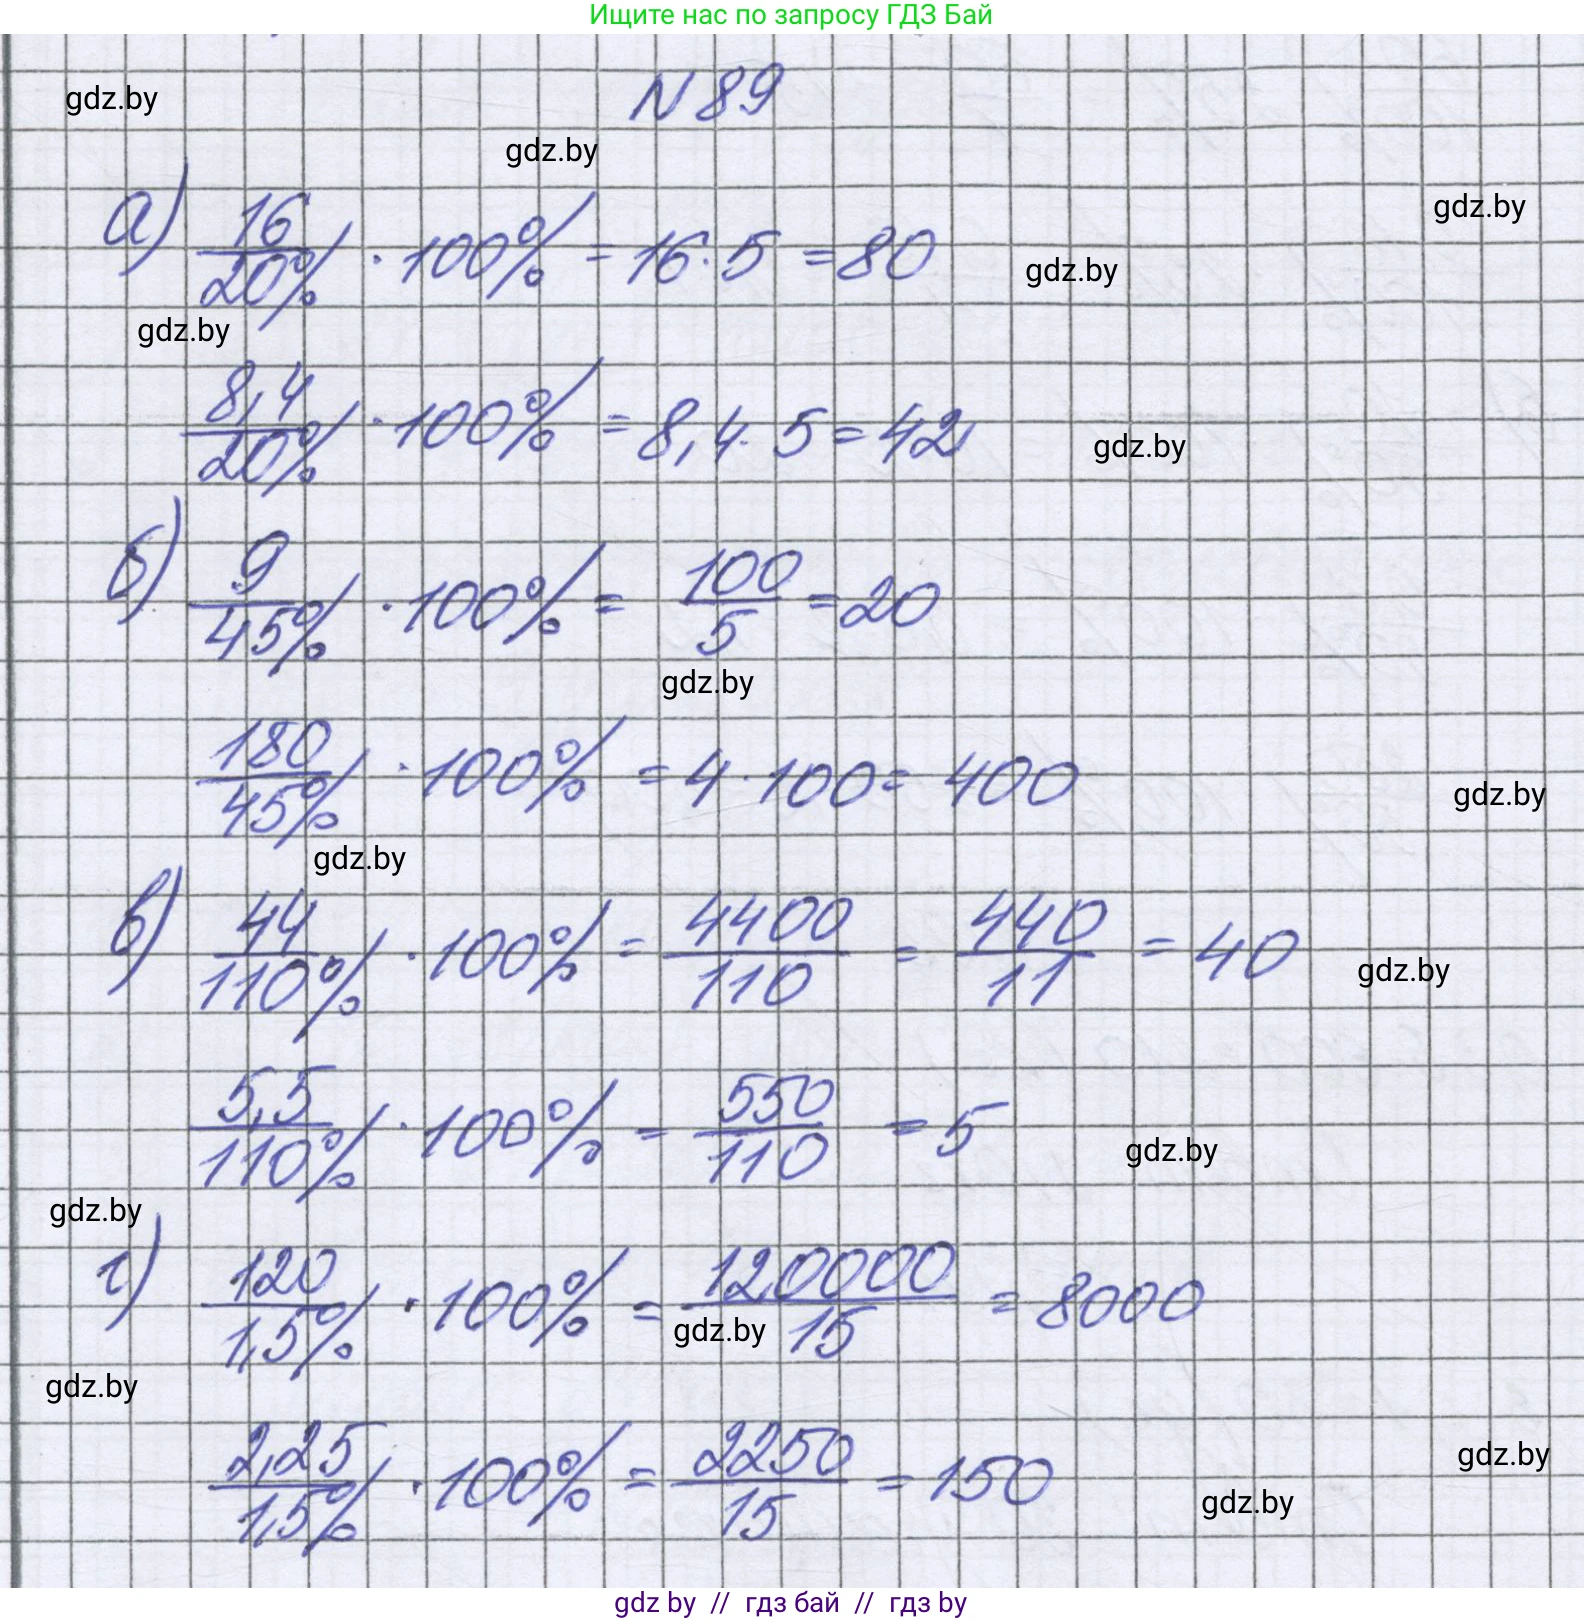 Ищите нас по запросу ГДЗ Бай
N 89
gdz.by
gdz.by
gdz.by
а) 16/20% · 100% = 16 · 5 = 80
gdz.by
gdz.by
8,4/20% · 100% = 8,4 · 5 = 42
gdz.by
б) 9/45% · 100% = 100/5 = 20
gdz.by
180/45% · 100% = 4 · 100 = 400
gdz.by
gdz.by
в) 44/110% · 100% = 4400/110 = 440/11 = 40
gdz.by
5,5/110% · 100% = 550/110 = 5
gdz.by
gdz.by
г) 120/1,5% · 100% = 120000/15 = 8000
gdz.by
gdz.by
2,25/1,5% · 100% = 2250/15 = 150
gdz.by
gdz.by
gdz by // гдз бай // гдз by